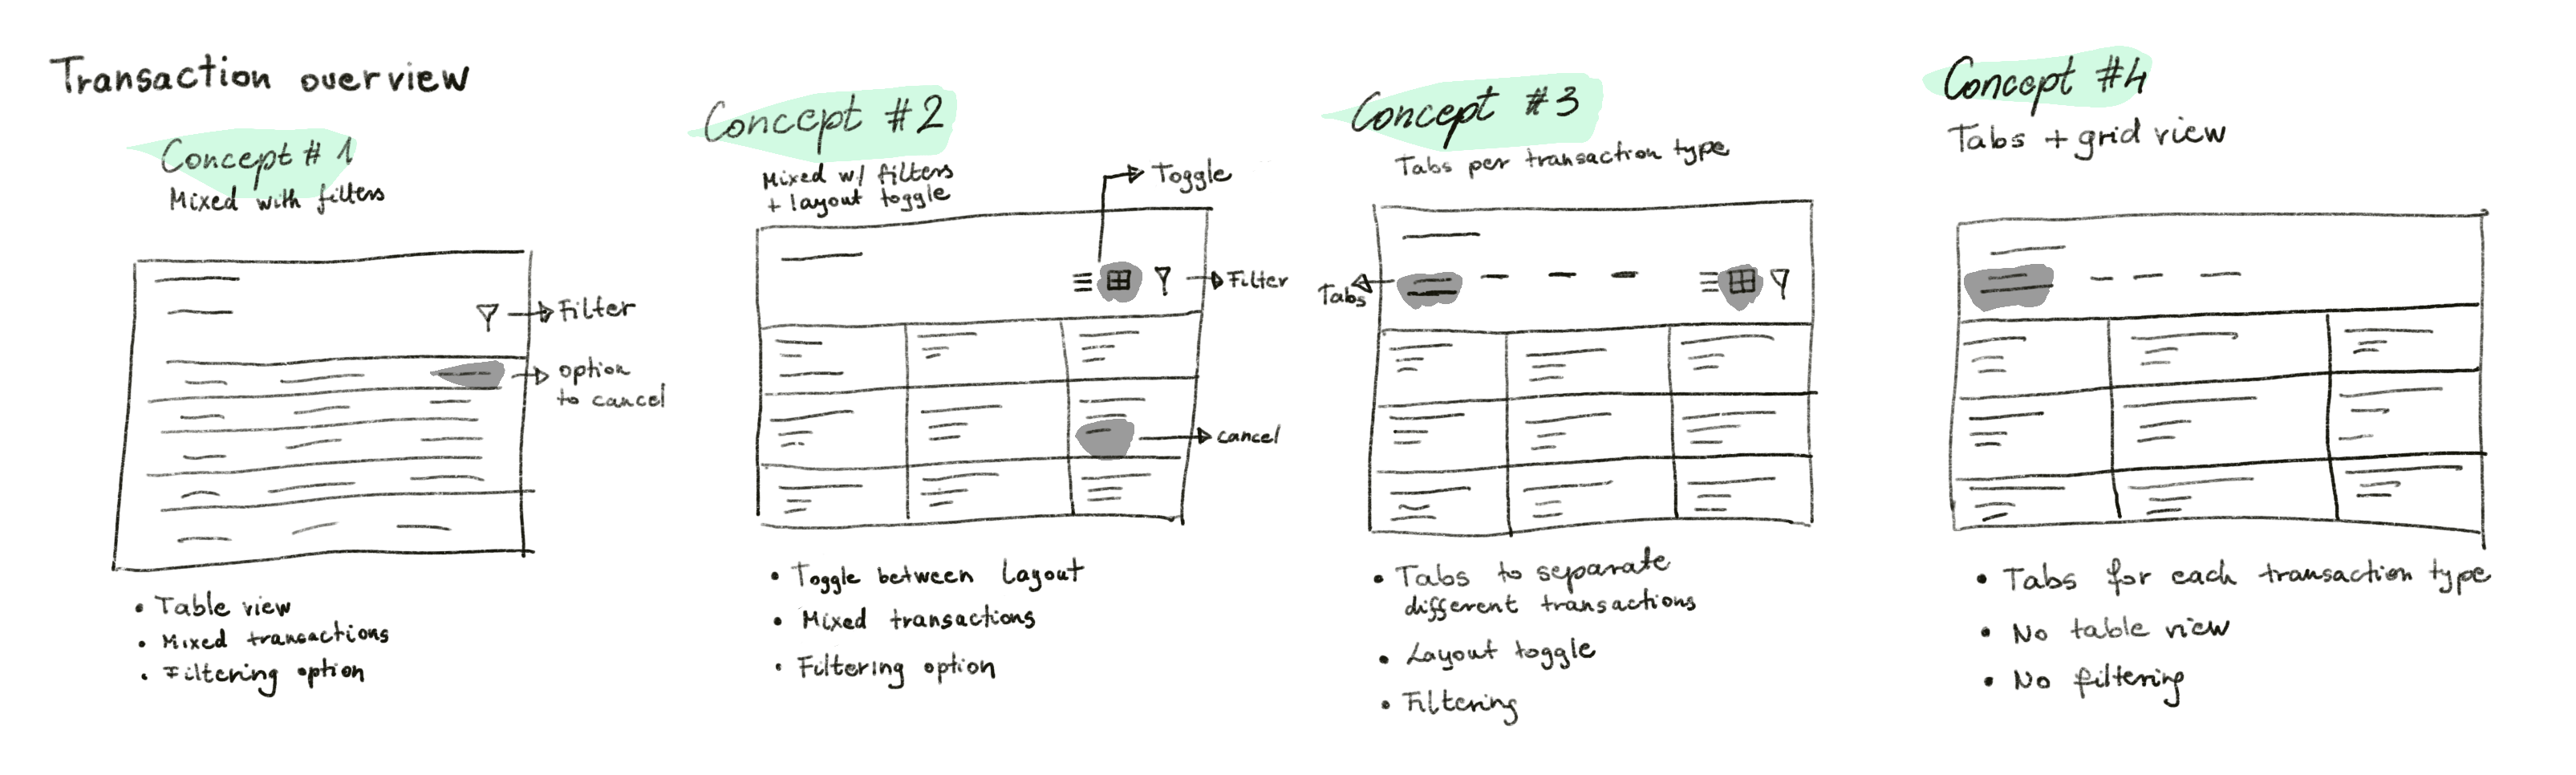 Transaction overview
Concept # 1
Mixed with filters
Filter
option
to cancel
• Table view
• Mixed transactions
• Filtering option
Concept #2
Mixed w/ filters
+ layout toggle
Toggle
Filter
cancel
• Toggle between Layout
• Mixed transactions
• Filtering option
Concept #3
Tabs per transaction type
Tabs
• Tabs to separate
different transactions
• Layout toggle
• Filtering
Concept #4
Tabs + grid view
• Tabs for each transaction type
• No table view
• No filtering